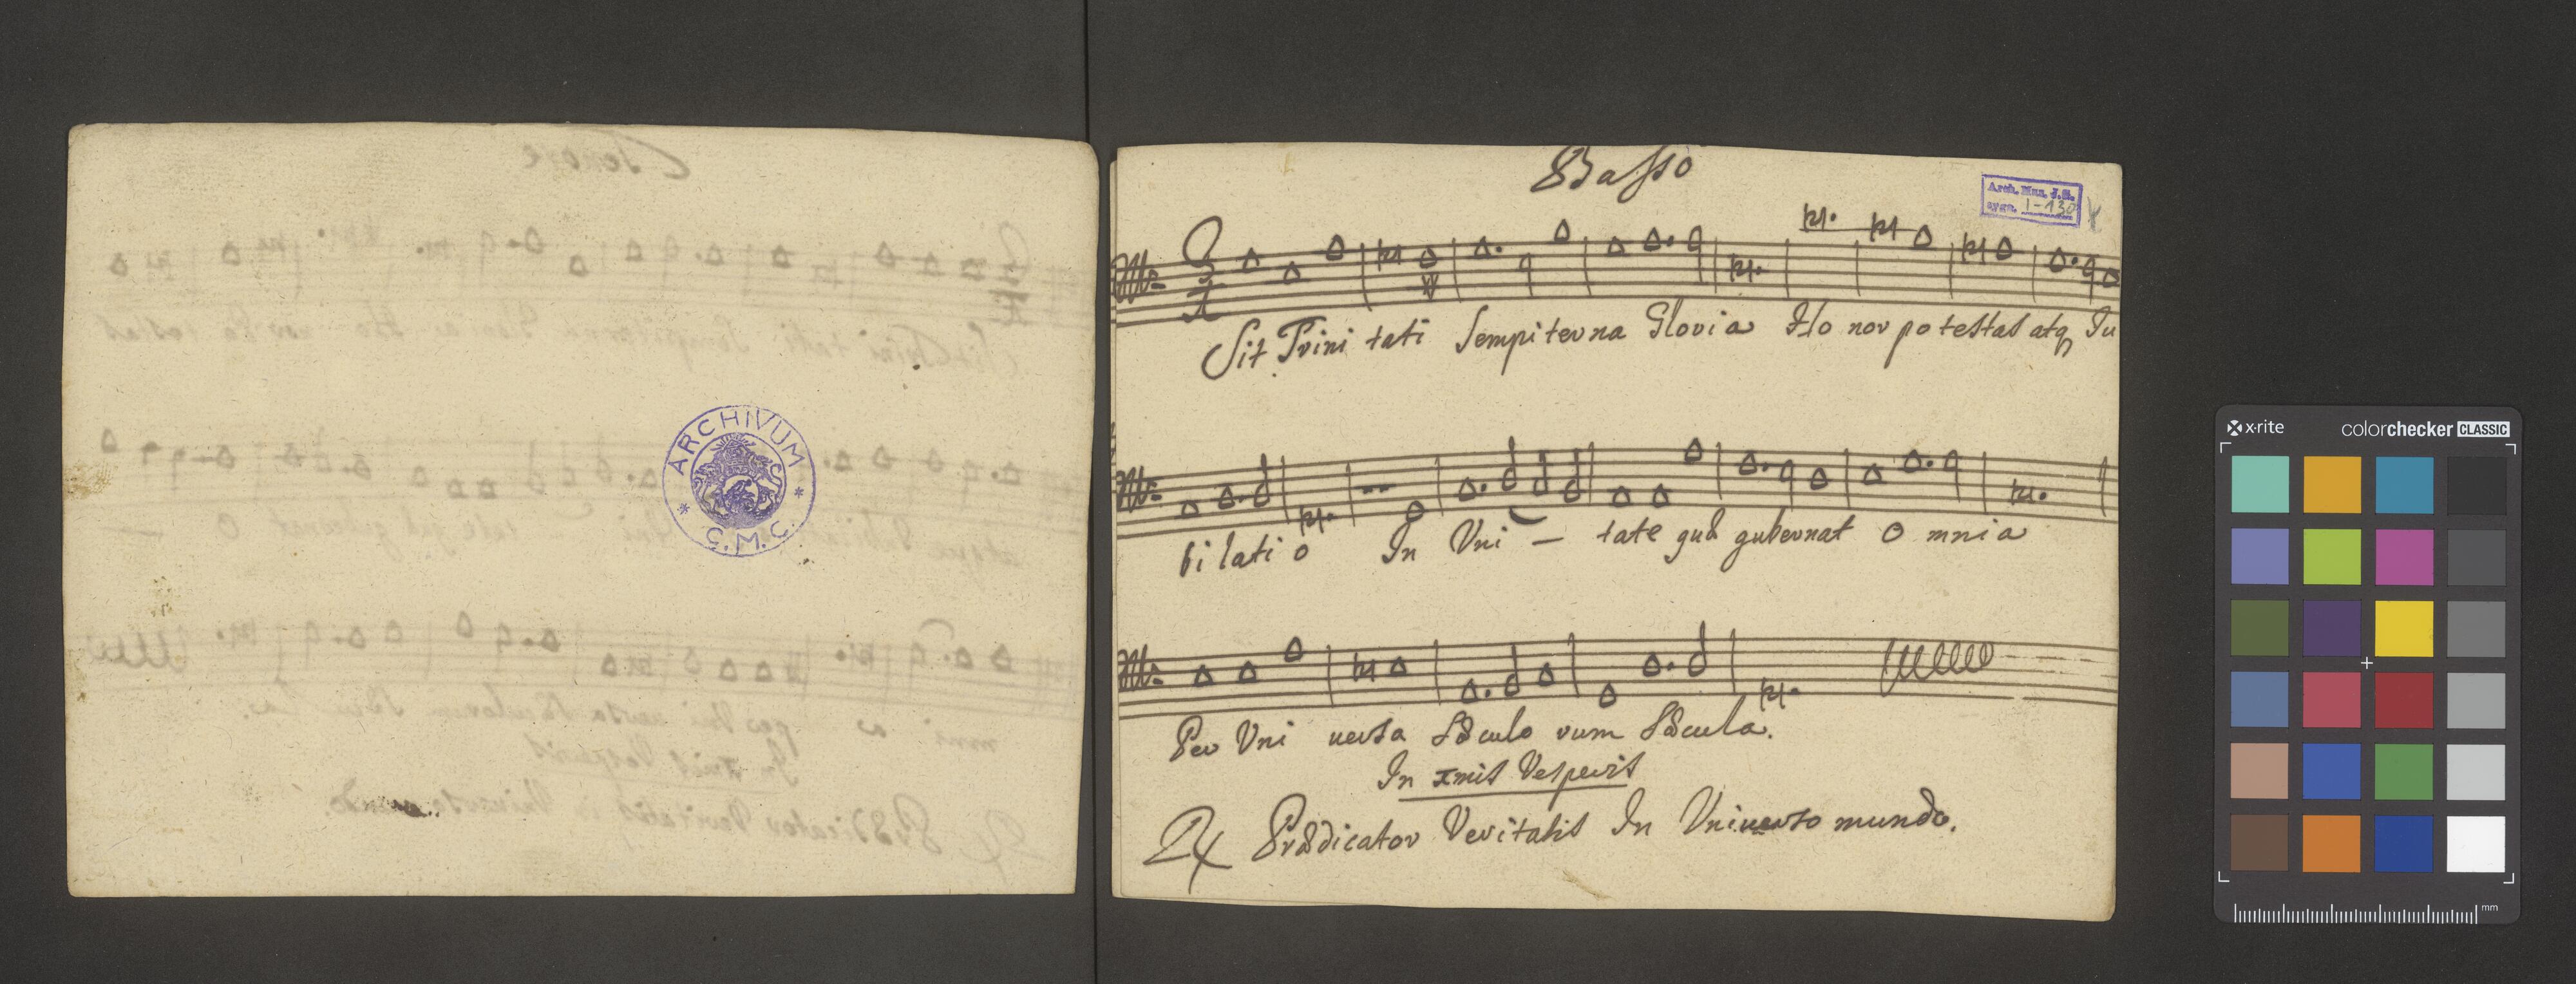 ARCHIVUM
Basso
Arch. Mus. J.G.
sygn. I-130
3
1
Sit Trini tati Sempiterna Gloria Ho nor potestas atq Iu
bi lati o In Vni — tate quæ gubernat O mnia
Per Vni uersa Sæculo rum Sæcula.
In xmis Vesperis
Prædicator Veritatis In Vniuerso mundo.
x-rite colorchecker CLASSIC
mm